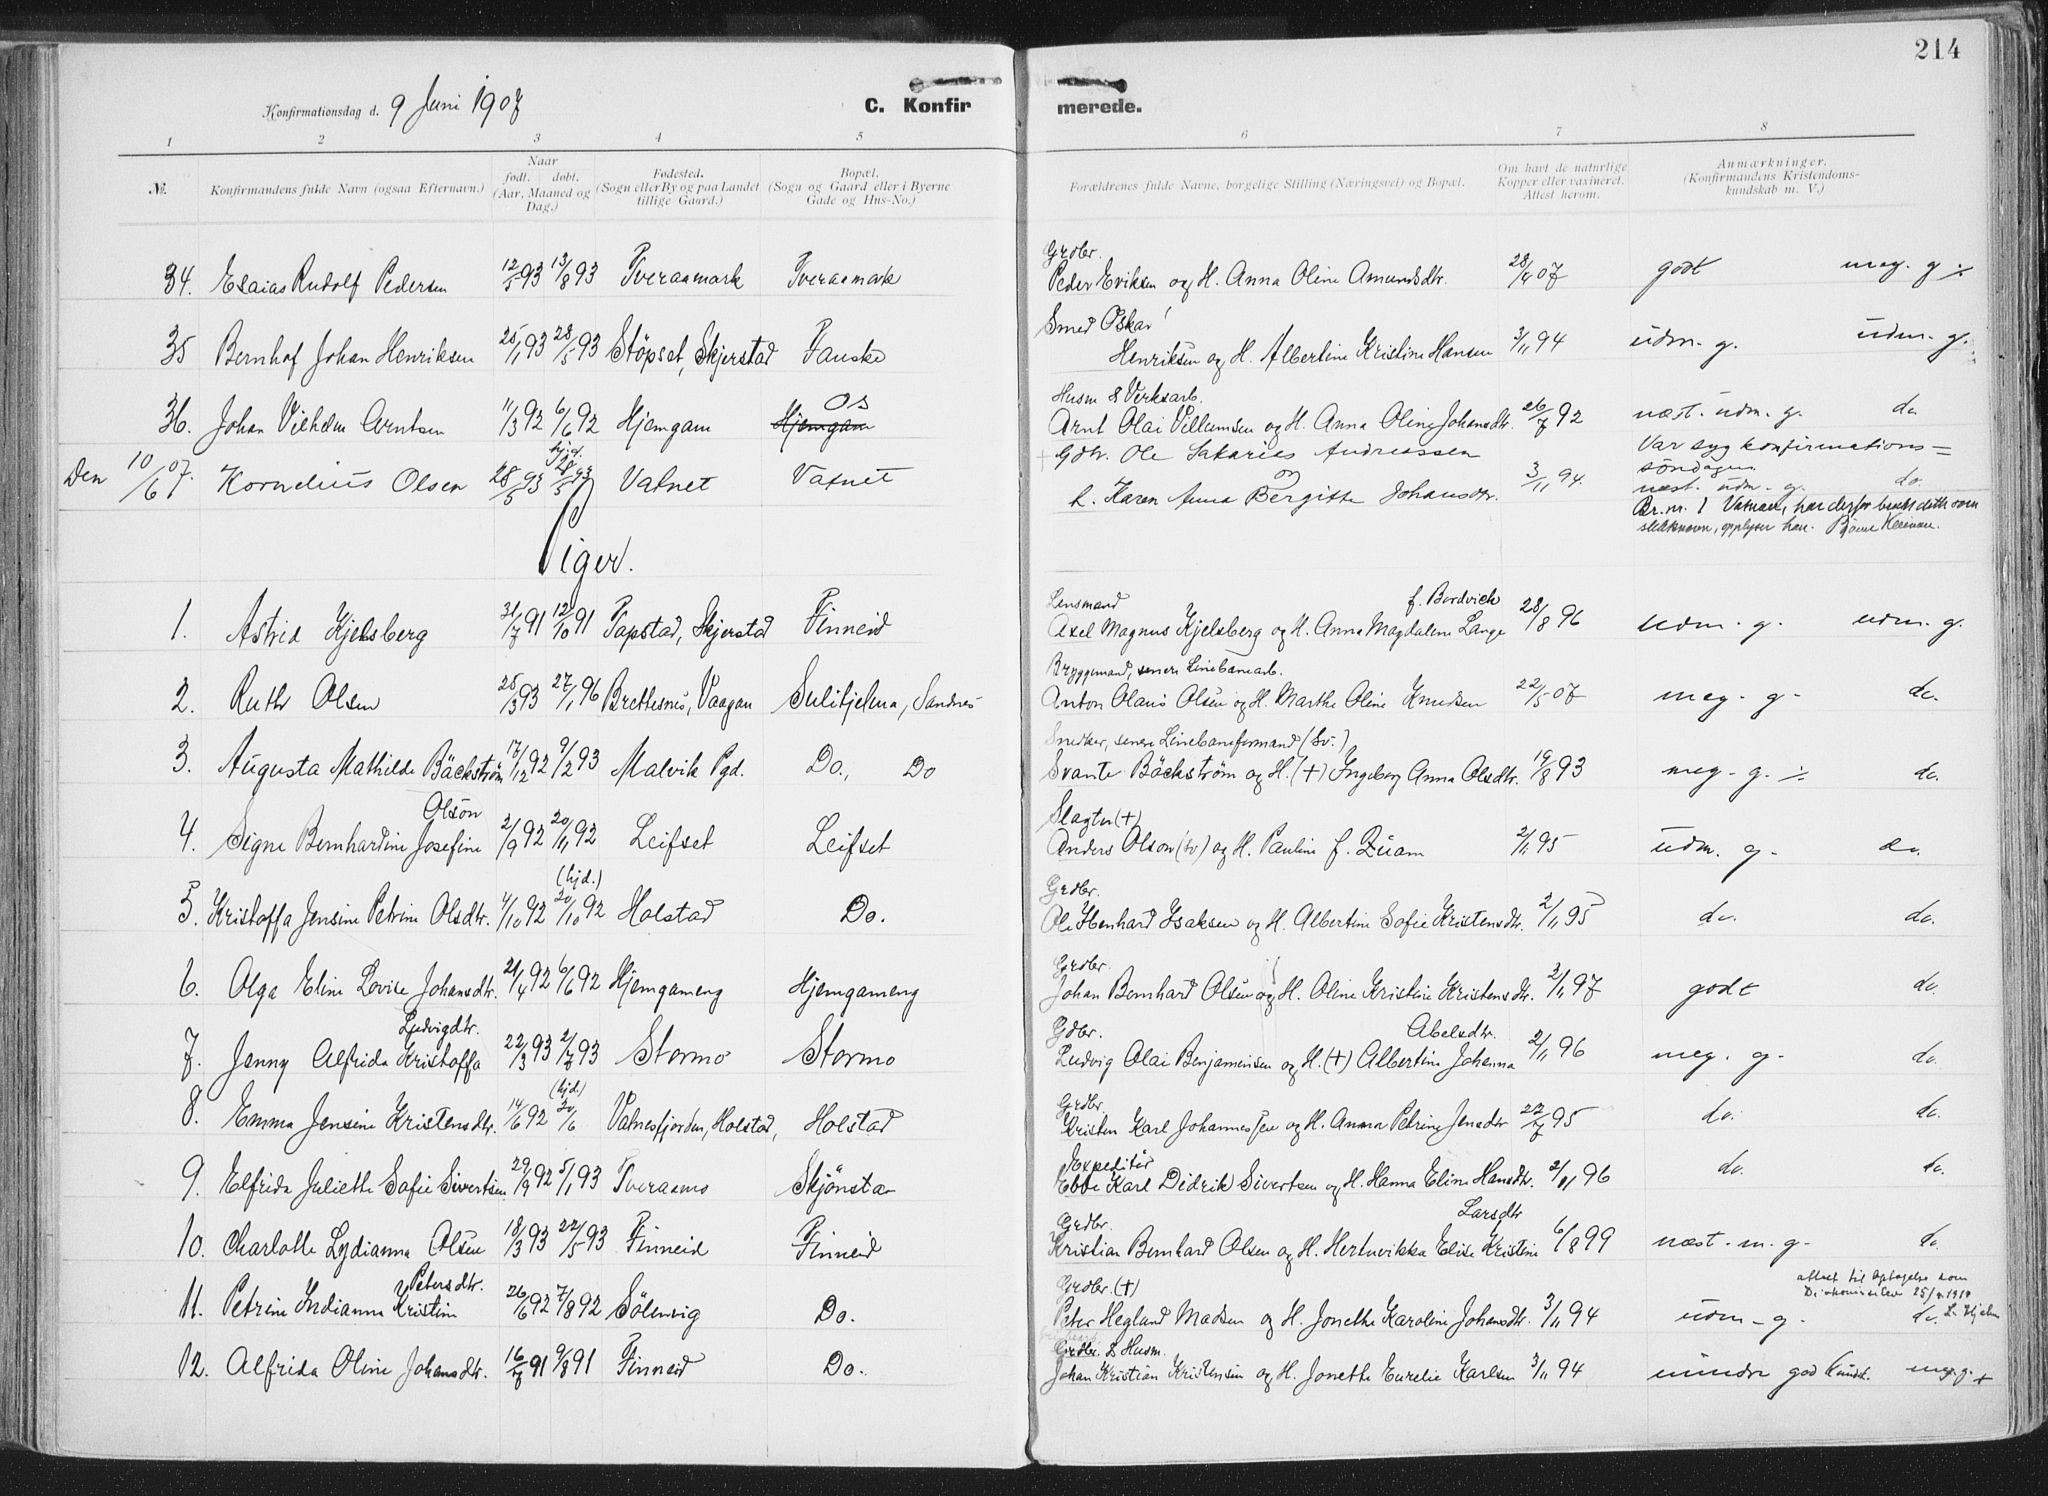 214
Konfirmationsdag d. 9 Juni 1907
C. Konfir merede.
1 2 3 4 5 6 7 8
No. Konfirmandens fulde Navn (ogsaa Efternavn.) Naar født. døbt. (Aar, Maaned og Dag.) Fødested. (Sogn eller By og paa Landet tillige Gaard.) Bopæl. (Sogn og Gaard eller i Byerne Gade og Hus-No.) Forældrenes fulde Navne, borgelige Stilling (Næringsvei) og Bopæl. Om havt de naturlige Kopper eller vaxineret. Attest herom. Anmærkninger. (Konfirmandens Kristendoms-kundskab m. V.)
Grdbr.
34. Esaias Rudolf Pedersen 12/5 93 13/8 93 Tveraamark Tveraamark Peder Eriksen og H. Anna Oline Amundsdtr. 28/4 07 godt meg. g ÷
Smed Oskar
35 Bernhof Johan Henriksen 25/1 93 28/5 93 Støpset, Skjerstad Fauske Henriksen og H. Albertine Kristine Hansen 3/11 94 udm. g. udm. g.
Husm & Verksarb.
Os
36. Johan Vilhelm Arntsen 11/3 92 6/6 92 Hjemgam Hjemgam Arnt Olai Villumsen og H. Anna Oline Johansdtr. 26/7 92 næst. udm. g. do
Gdbr. Ole Sakarias Andreassen Var syg konfirmations=
Den 10/6 07. Kornelius Olsen 28/5 93 hjd. 28/5 93 Vatnet Vatnet og h. Karen Anna Bergitte Johansdtr. 3/11 94. søndagen næst. udm. g. do.
Br. nr. 1 Vatnet, har derfor brukt dette som
slektnavn, opplyser han.
Piger.
Lensmand f. Bordvick
1. Astrid Kjelsberg 31/7 91 12/10 91 Tapstad, Skjerstad Finneid Axel Magnus Kjelsberg og H. Anna Magdalene Lange 28/8 96 udm. g. udm. g.
Bryggemand, senere Linebanearb.
2. Ruth Olsen 25/3 93 27/1 96 Brettesnes, Vaagan Sulitjelma, Sandnes Anton Olaus Olsen og H. Marthe Oline Knudsen 22/5 07 meg. g. do.
Snedker, senere Linebaneformand (Sv.)
3. Augusta Mathilde Bäckström 17/12 92 9/2 93 Malvik Pgd. Do., Do Svante Bäckström og H. (+) Ingeborg Anna Olsdtr. 19/8 93 meg. g. ÷ do.
Olson Slagter (+)
4. Signe Bernhardine Josefine 2/9 92 20/11 92 Leifset Leifset Anders Olson (sv) og H. Pauline f. Zuam 2/11 95 udm. g. do.
(hjd.) Grdbr.
5. Kristoffa Jensine Petrine Olsdtr. 4/10 92 30/10 92 Holstad Do. Ole Henhard Isaksen og H. Albertine Sofie Kristensdtr. 2/11 95 do. do.
Grdbr.
6. Olga Eline Lovise Johansdtr. 21/4 92 6/6 92 Hjemgameng Hjemgameng Johan Bernhard Olsen og H. Oline Kristine Kristensdtr. 2/11 97 godt do.
Ludvigdtr. Gdbr. Abelsdtr.
7. Jenny Alfrida Kristoffa 22/3 93 2/7 93 Stormo Stormo Ludvig Olai Benjaminsen og H. (+) Albertine Johanna 2/11 96 meg. g. do.
(hjd.) Grdbr.
8. Emma Jensine Kristensdtr. 14/6 92 30/6 Vatnesfjorden, Holstad, Holstad Kristen Karl Johannessen og H. Anna Petrine Jensdtr 22/7 95 do. do.
Expeditør
9. Elfrida Juliette Sofie Sivertsen 29/9 92 5/1 93 Tveraamo Skjønsta Ebbe Karl Didrik Sivertsen og H. Hanna Eline Hansdtr. 2/11 96 do. do.
Grdbr. Larsdtr
10. Charlotte Lydianna Olsen 18/3 93 22/5 93 Finneid Finneid Kristian Bernhard Olsen og H. Hertnvikka Elise Kristine 6/8 99 næst. m. g. do.
Petersdtr. Grdbr. (+) attest til Optagelse som
11. Petrine Indianna Kristin 26/6 92 7/8 92 Sölvsvig Do. Peter Hegland Madsen og H. Jonette Karoline Johansdtr. 3/11 94 udm. g. do.
Grdbr. & Husm.
12. Alfrida Oline Johansdtr. 16/7 91 9/8 91 Finneid Do. Johan Kristian Kristensen og H. Jonette Eurelie Karlsen 3/11 94 mindre god kundsk. meg. g. +